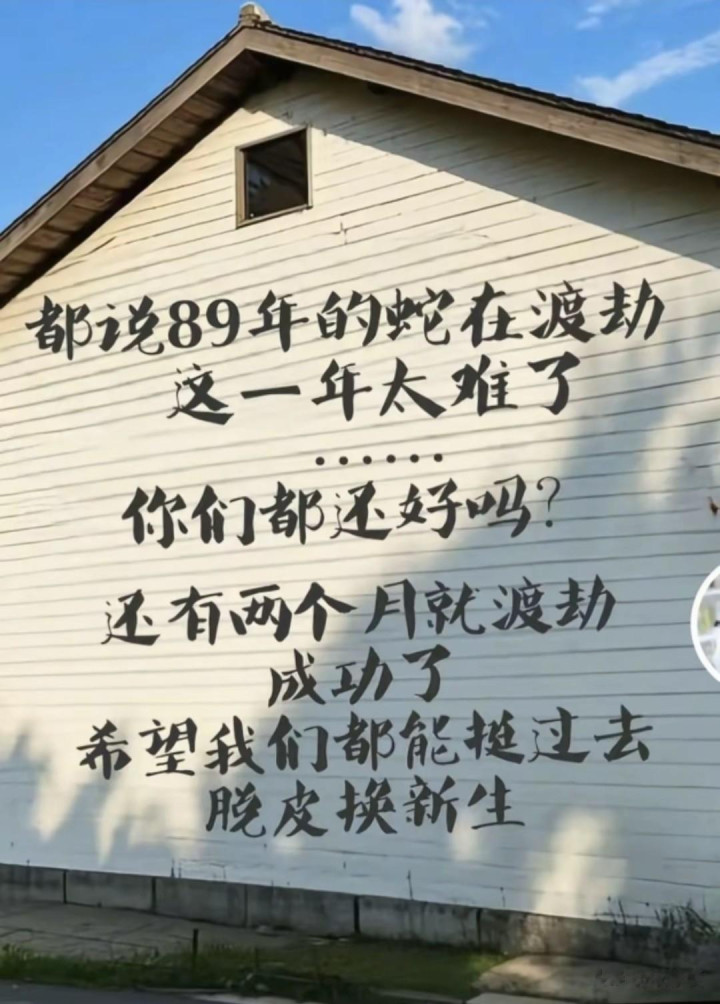 都说89年的蛇在渡劫
这一年太难了
......
你们都还好吗?
还有两个月就渡劫
成功了
希望我们都能挺过去
脱皮换新生